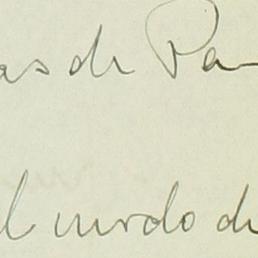 as de Pa
l mrdo de